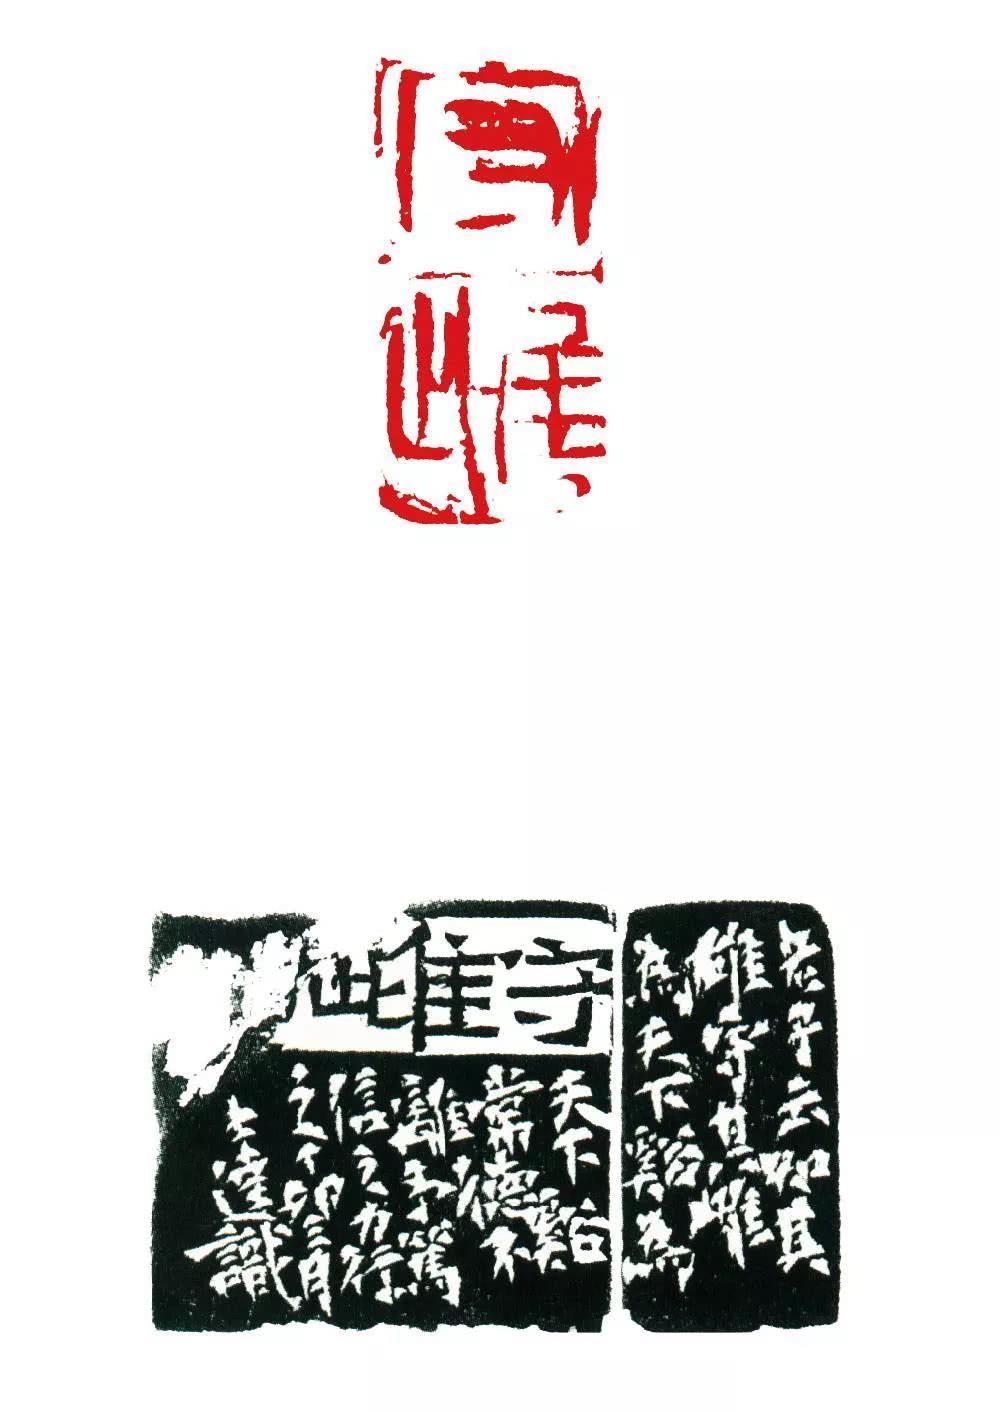 守
雌
老子云知其
雄守其雌
為天下谿為
守雌
天下谿
常德不
離予篤
信之力行
之丁卯三月
達識